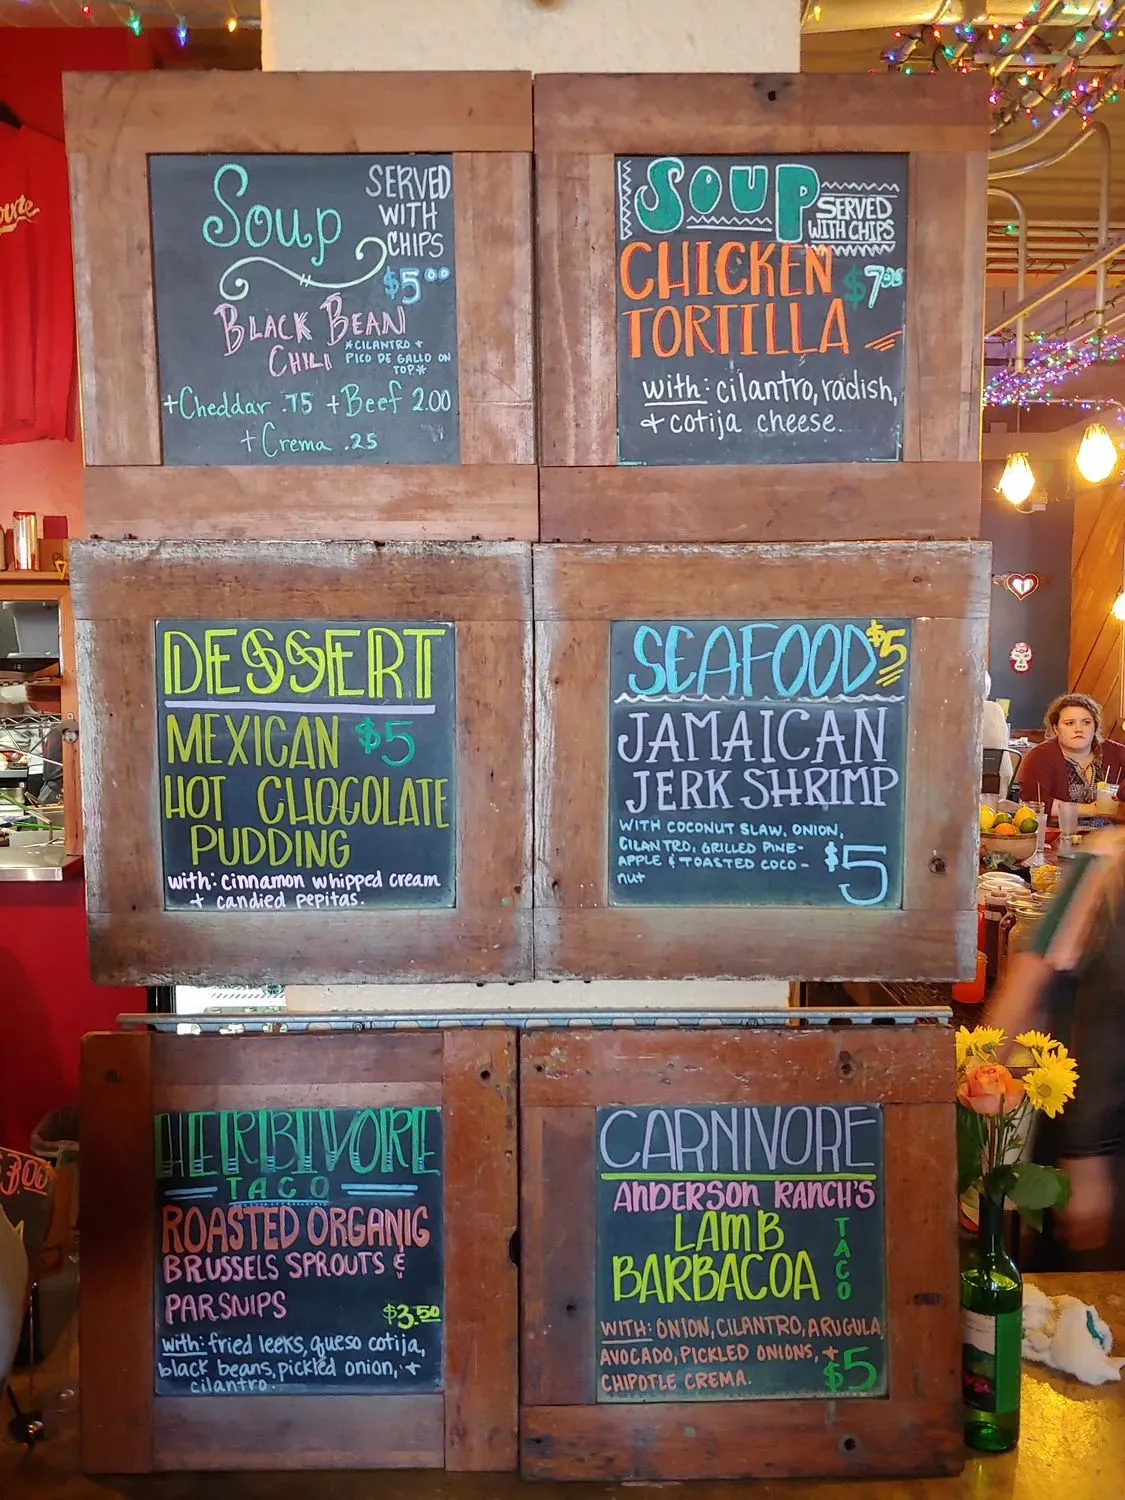 Soup
SERVED
WITH
CHIPS
$5.00
BLACK BEAN
CHILI
*CILANTRO +
PICO DE GALLO ON
TOP*
+Cheddar .75 +Beef 2.00
+Crema .25
SOUP
SERVED
WITH CHIPS
CHICKEN $7.00
TORTILLA
with: cilantro, radish,
+ cotija cheese.
DESSERT
MEXICAN $5
HOT CHOCOLATE
PUDDING
with: cinnamon whipped cream
+ candied pepitas.
SEAFOOD $5
JAMAICAN
JERK SHRIMP
WITH COCONUT SLAW, ONION,
CILANTRO, GRILLED PINE-
APPLE & TOASTED COCO-
nut
$5
HERBIVORE
TACO
ROASTED ORGANIC
BRUSSELS SPROUTS &
PARSNIPS
$3.50
with: fried leeks, queso cotija,
black beans, pickled onion, +
cilantro.
CARNIVORE
ANDERSON RANCH'S
LAMB
BARBACOA
TACO
WITH: ONION, CILANTRO, ARUGULA,
AVOCADO, PICKLED ONIONS, +
CHIPOTLE CREMA.
$5
3.00